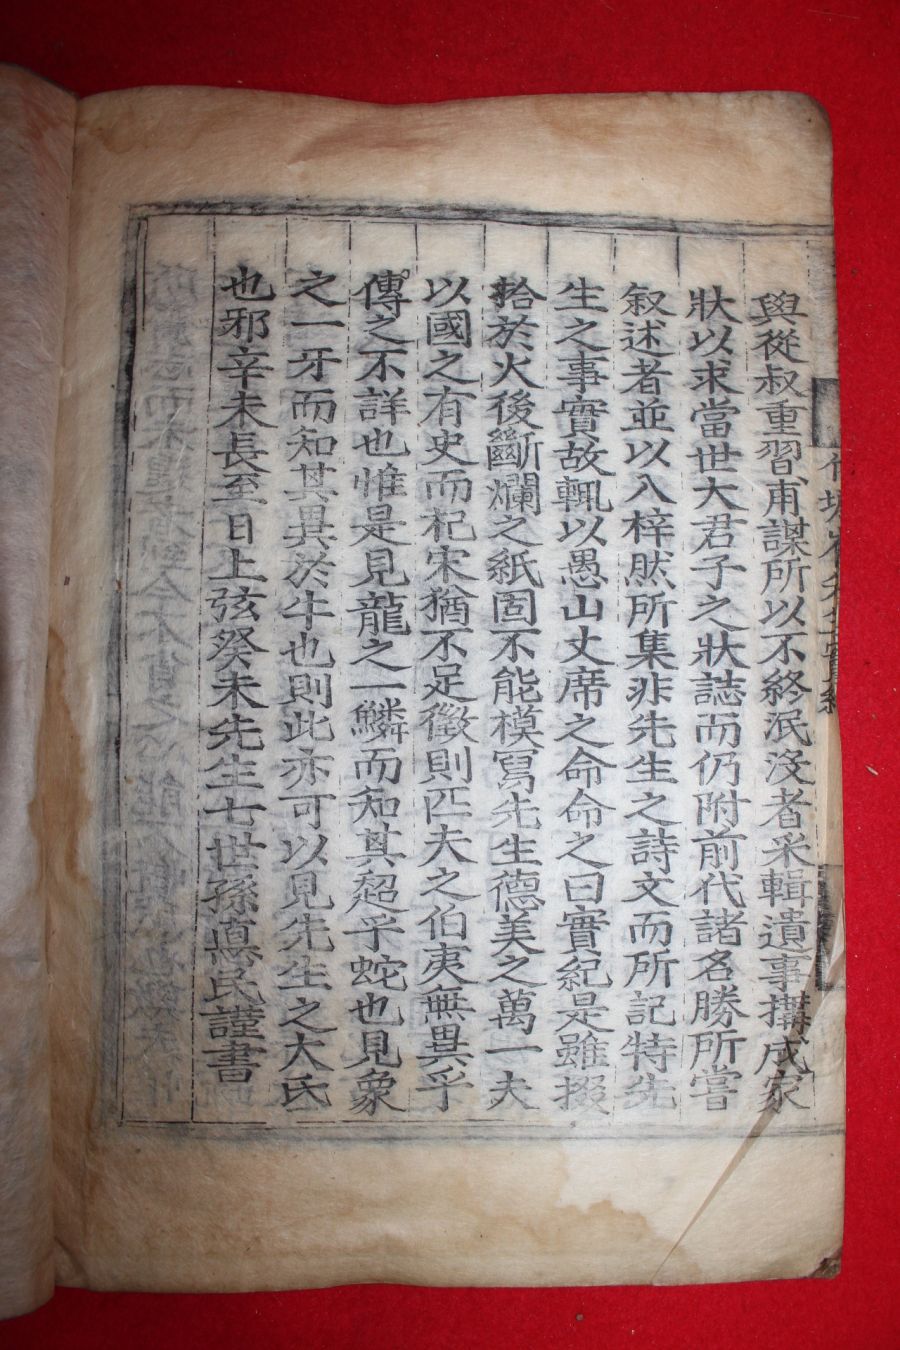 與從叔重習甫謀所以不終泯沒者采輯遺事撰成家
狀以求當世大君子之狀誌而仍附前代諸名勝所嘗
叙述者並以入梓然所集非先生之詩文而所記特先
生之事實故輒以愚山丈席之命命之曰實紀是雖掇
拾於火後斷爛之紙固不能模寫先生德美之萬一夫
以國之有史而杞宋猶不足徵則匹夫之伯夷無異乎
傳之不詳也惟是見龍之一鱗而知其超乎蛇也見象
之一牙而知其異於牛也則此亦可以見先生之大氏
也邪辛未長至日上弦癸未先生七世孫眞民謹書